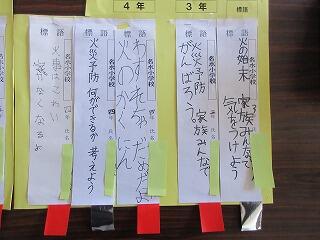 標語
3年
4年
標語
名水小学校
年 氏名
火の始末 家族みんなで
気をつけよう
標語
名水小学校
火災予防 家族みんなで
がんばろう。
標語
名水小学校
年 氏名
わすれちゃだめだよ
火のかくにん
標語
名水小学校
四年 氏名
火災予防 何ができるか 考えよう
標語
名水小学校
四年 氏名
火事はこわい
家がなくなるよ